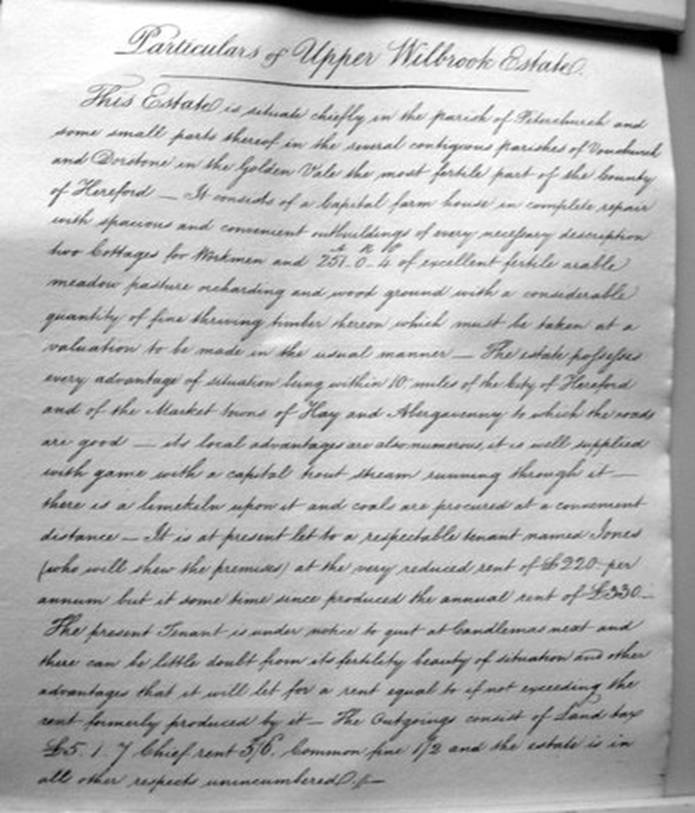 Particulars of Upper Wilbrook Estate.
This Estate is situate chiefly in the parish of Peterchurch and
some small parts thereof in the several contiguous parishes of Vowchurch
and Dorstone in the Golden Vale the most fertile part of the County
of Hereford — It consists of a Capital farm house in complete repair
with spacious and convenient outbuildings of every necessary description
A R P
two Cottages for Workmen and 251-0-4 of excellent fertile arable
meadow pasture orcharding and wood ground with a considerable
quantity of fine thriving timber thereon which must be taken at a
valuation to be made in the usual manner — The estate possesses
every advantage of situation being within 10 miles of the City of Hereford
and of the Market towns of Hay and Abergavenny to which the roads
are good — its local advantages are also numerous, it is well supplied
with game with a capital trout stream running through it —
there is a limekiln upon it and coals are procured at a convenient
distance — It is at present let to a respectable tenant named Jones
(who will shew the premises) at the very reduced rent of £220 per
annum but it some time since produced the annual rent of £330 —
The present Tenant is under notice to quit at Candlemas next and
there can be little doubt from its fertility beauty of situation and other
advantages that it will let for a rent equal to if not exceeding the
rent formerly produced by it — The Outgoings consist of Land tax
£5. 1. 7 Chief rent 5/6. Common fine 1/2 and the estate is in
all other respects unincumbered. —